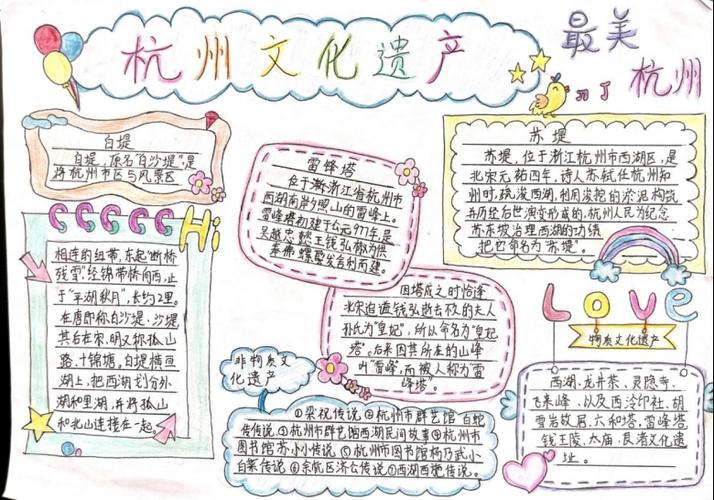 杭州文化遗产
最美
杭州
白堤
白堤,原名"白沙堤",是
将杭州市区与风景区
Hi
相连的纽带,东起"断桥
残雪",经锦带桥向西,止
于"平湖秋月",长约2里。
在唐即称白沙堤、沙堤,
其后在宋、明又称孤山
路、十锦塘,白堤横亘
湖上,把西湖划分外
湖和里湖,并将孤山
和北山连接在一起。
雷锋塔
位于浙江省杭州市
西湖南岸夕照山的雷峰上。
雷峰塔初建于公元977年是
吴越忠懿王钱弘俶为供
奉佛螺髻发舍利而建。
因塔成之时恰逢
北宋追谥钱弘逝去不久的夫人
孙氏为"皇妃",所以命名为"皇妃
塔"。后来因其所在的山峰
叫"雷峰",而被人称为雷
峰塔。
苏堤
苏堤,位于浙江杭州市西湖区,是
北宋元祐四年,诗人苏轼任杭州知
州时,疏浚西湖,利用浚挖的淤泥构筑
并历经后世演变形成的,杭州人民为纪念
苏东坡治理西湖的功绩
把它命名为"苏堤"。
LOVe
物质文化遗产
西湖、龙井茶、灵隐寺、
飞来峰、以及西泠印社、胡
雪岩故居、六和塔,雷峰塔
钱王陵、太庙、良渚文化遗
址。
非物质文
化遗产
①梁祝传说②杭州市群艺馆白蛇
传传说③杭州市群艺馆西湖民间故事④杭州市
图书馆苏小小传说⑤杭州市图书馆杨乃武小
白菜传说⑥余杭区济公传说⑦西湖西施传说。